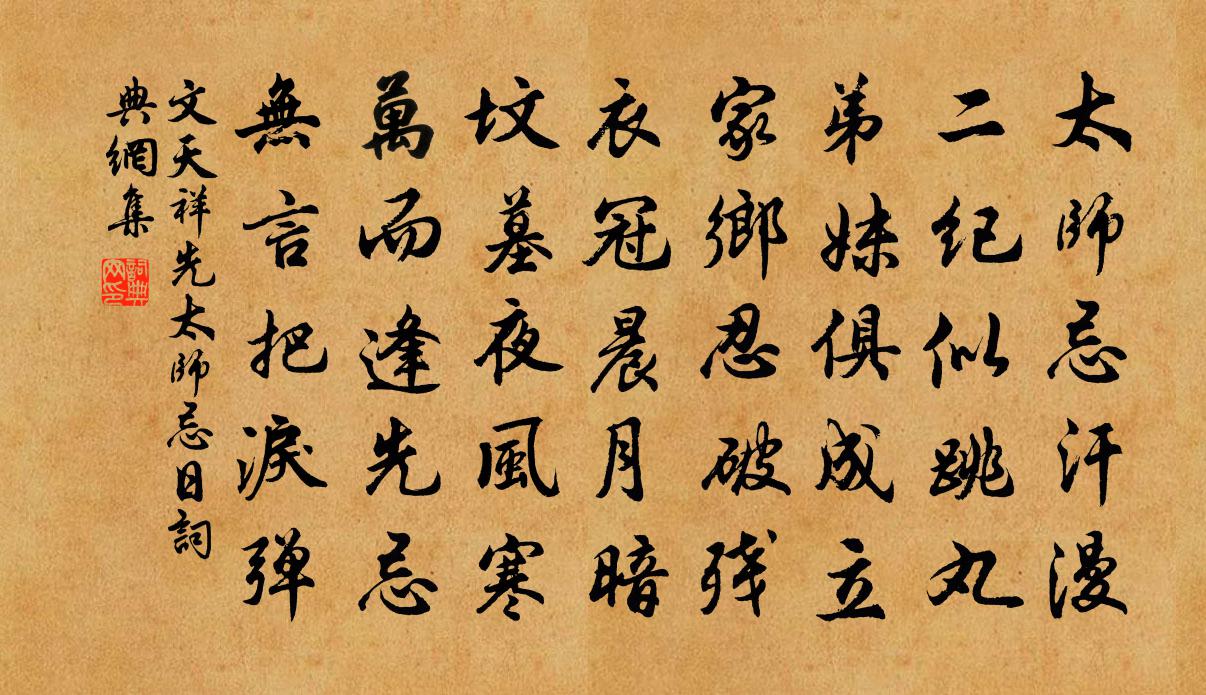 太師忌汗漫
二紀似跳丸
弟妹俱成立
家鄉忍破残
衣冠晨月暗
坟墓夜風寒
萬而逢先忌
無言把淚弹
文天祥先太師忌日詞
典網集
詞典
网印